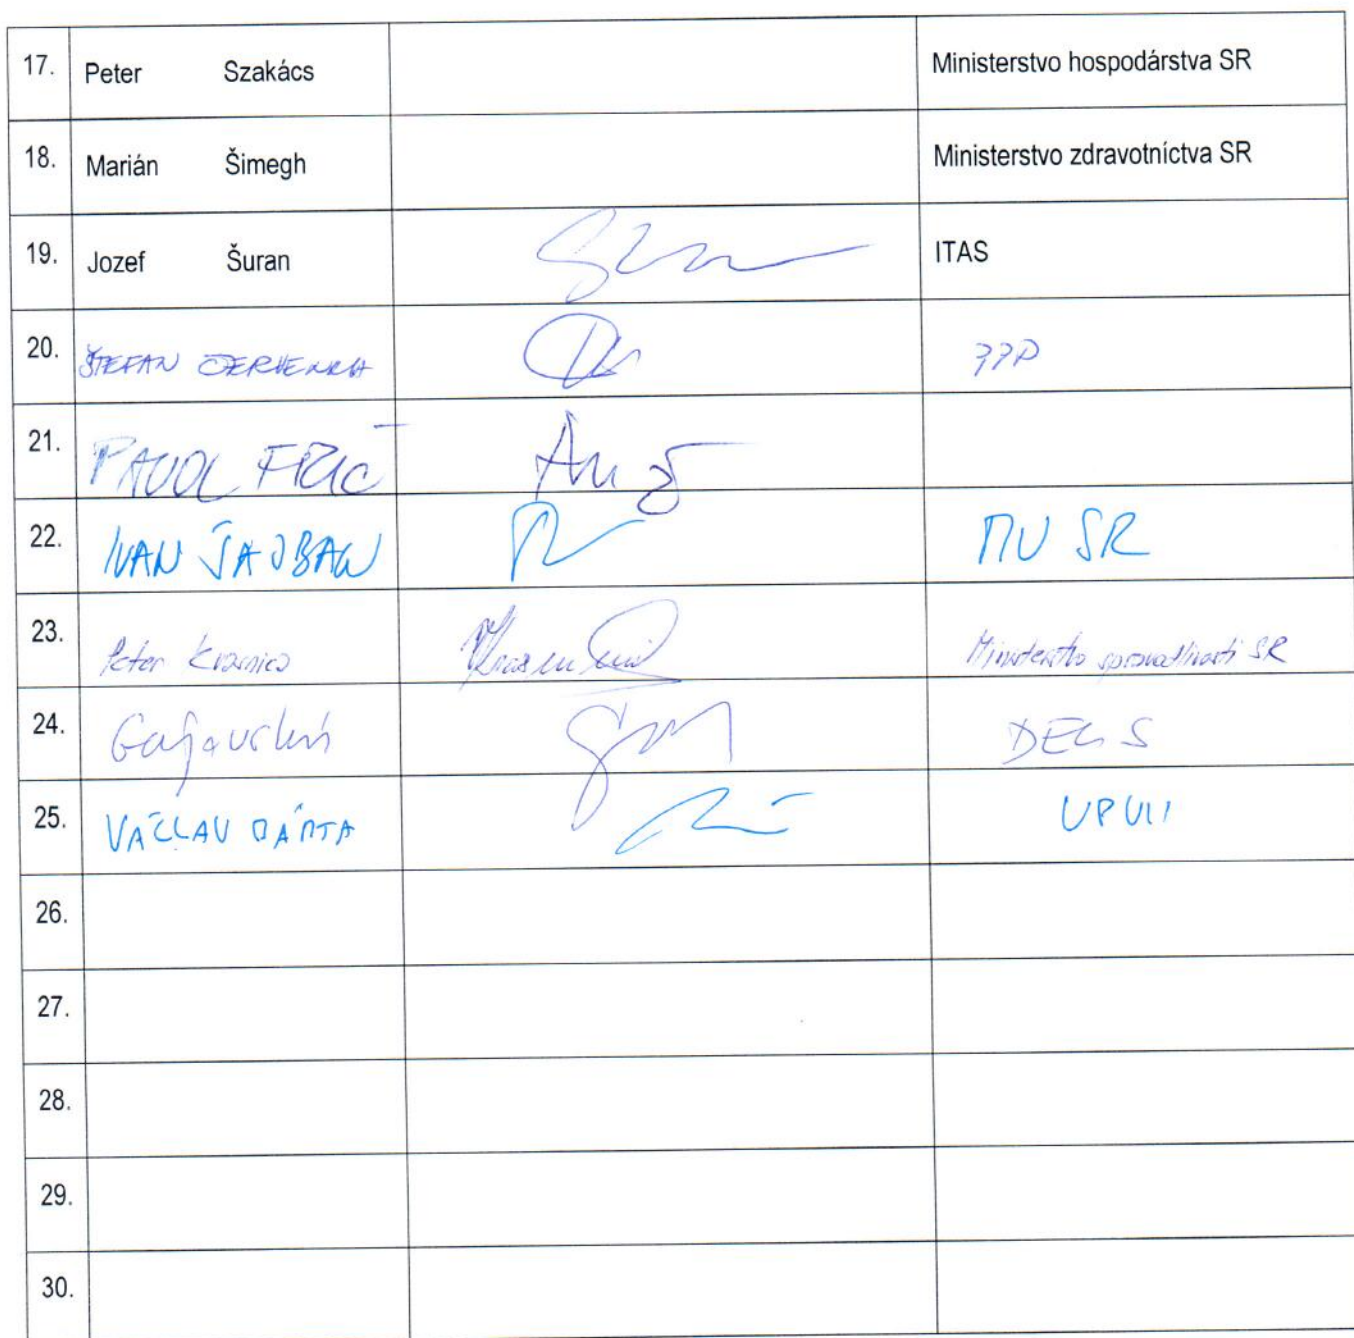 17. Peter Szakács Ministerstvo hospodárstva SR
18. Marián Šimegh Ministerstvo zdravotníctva SR
19. Jozef Šuran ITAS
20. ŠTEFAN PPP
21. PAVOL FRIČ
22. IVAN MV SR
23. Peter Ministerstvo spravodlivosti SR
24.
25. VÁCLAV BÁRTA UPVII
26.
27.
28.
29.
30.